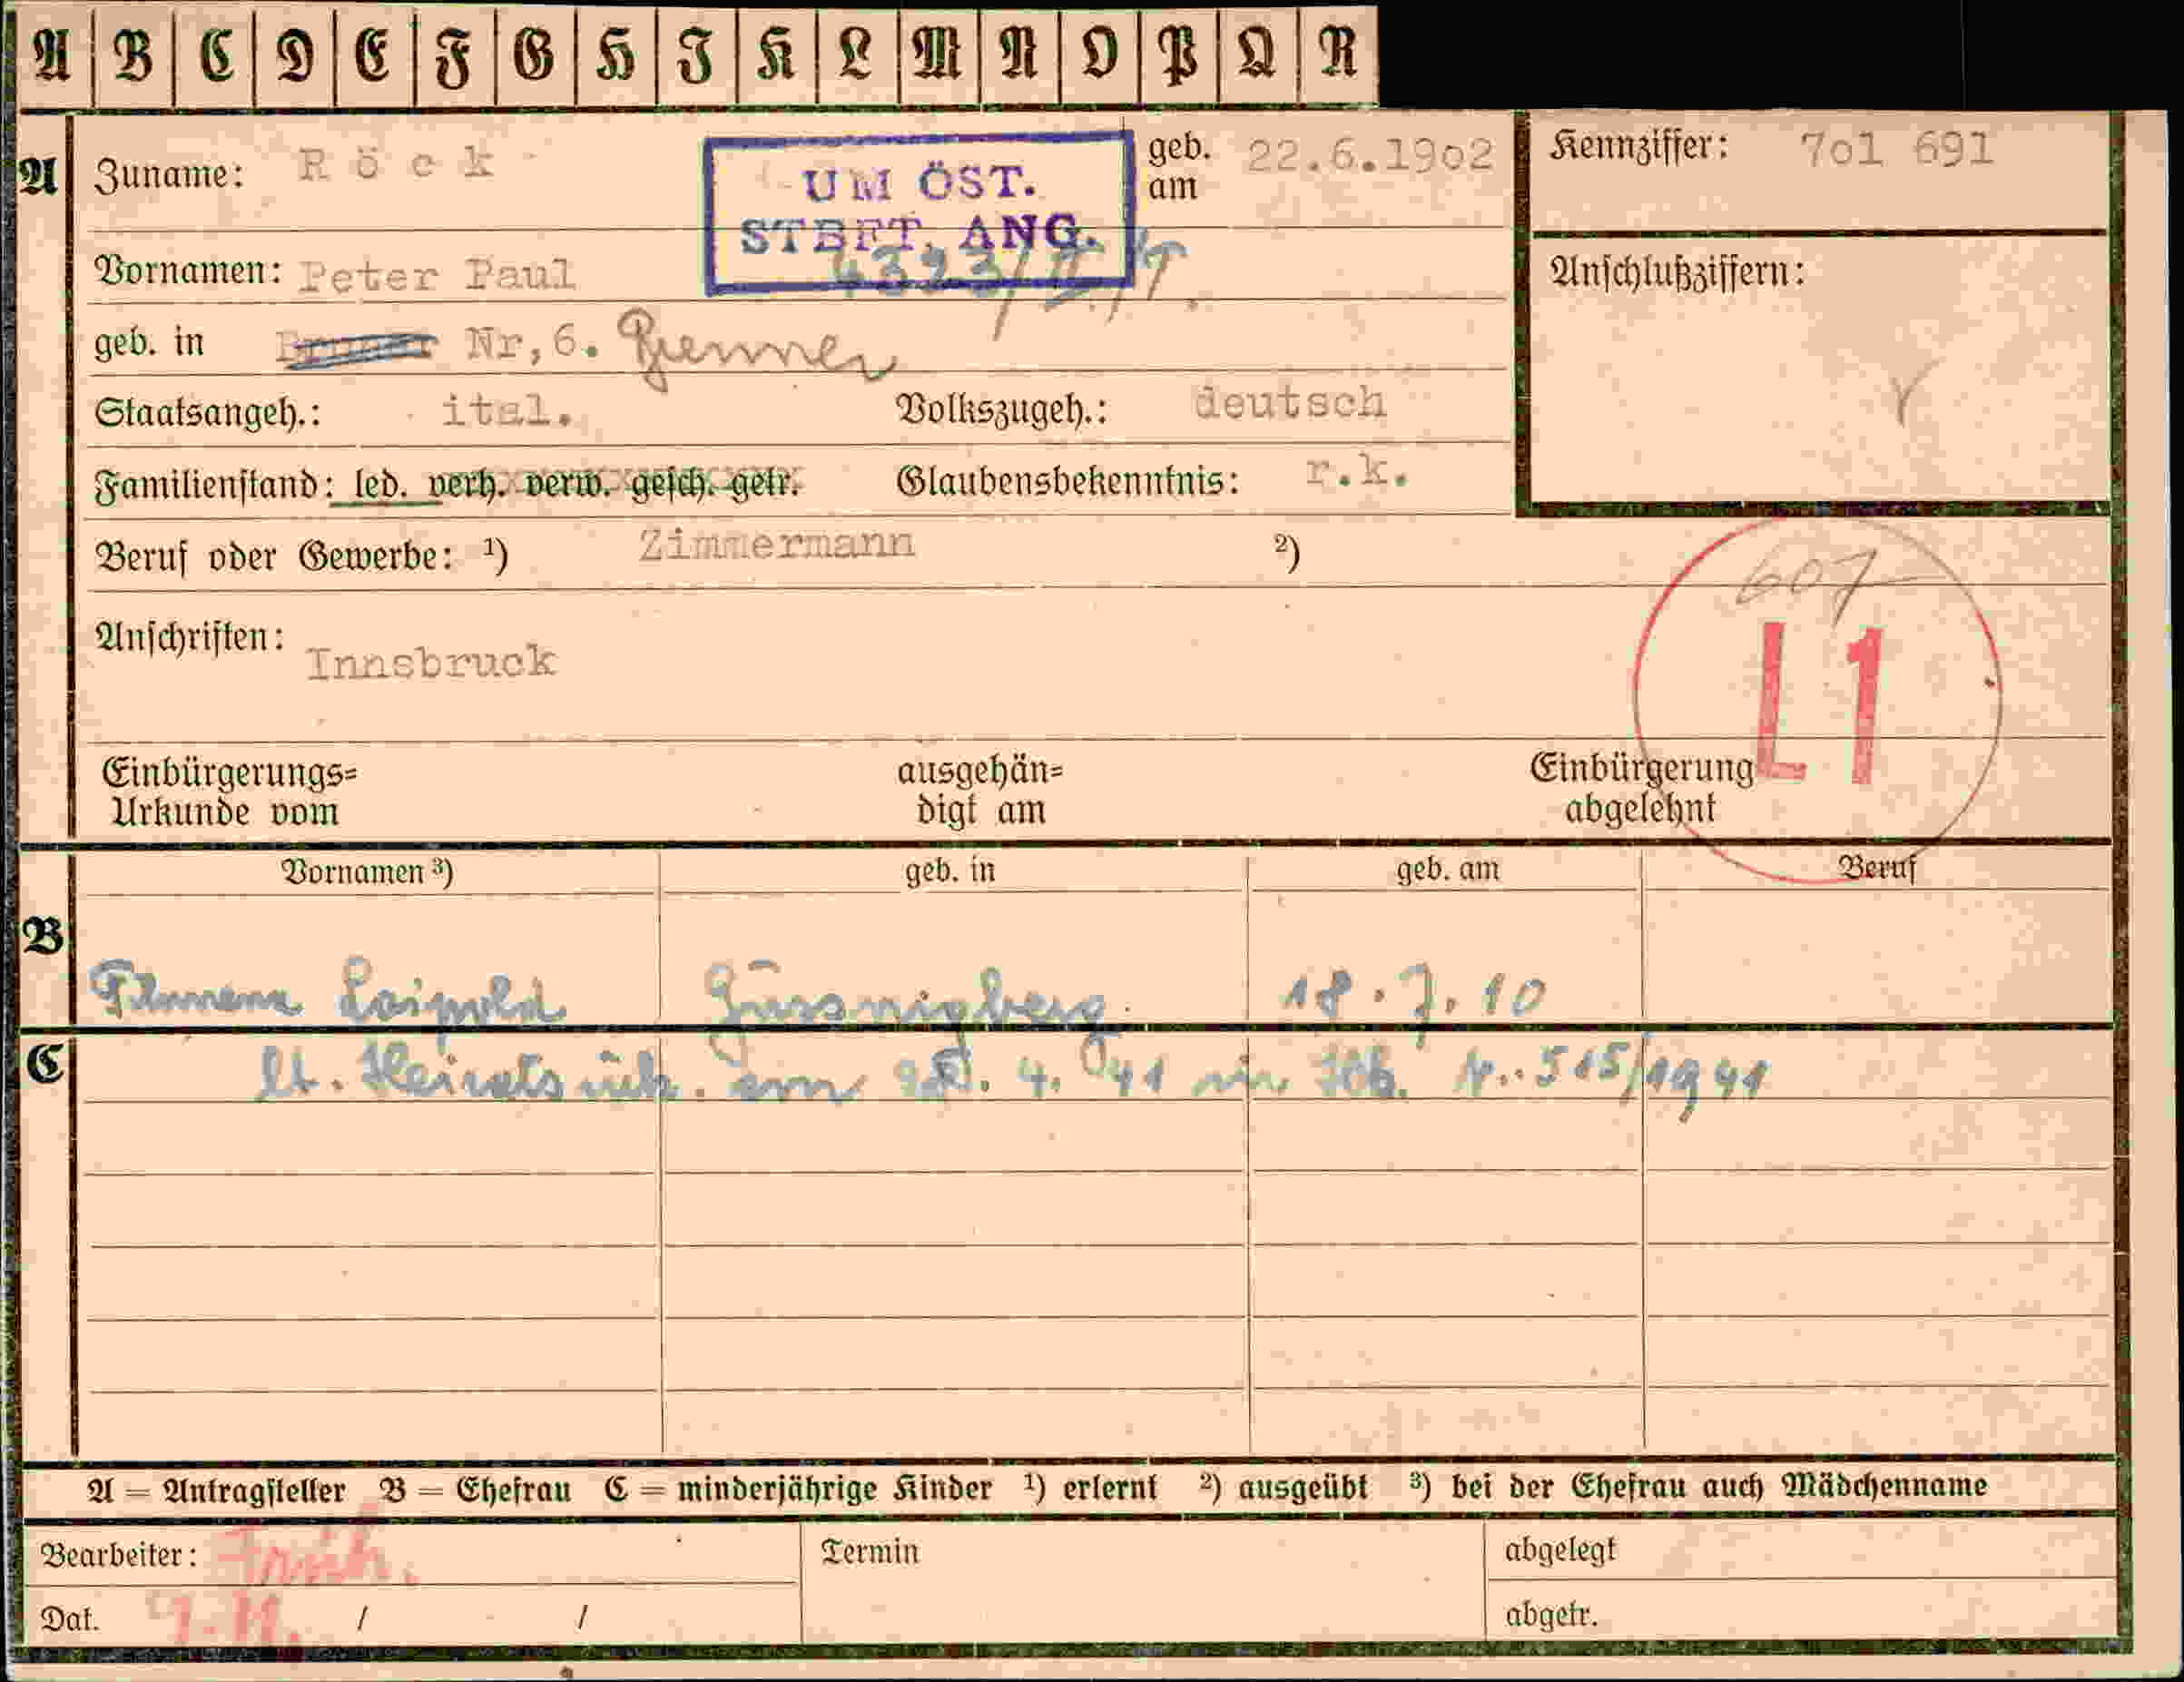 A B C D E F G H I K L M N O P Q R
A Zuname: Röck
UM ÖST.
STBFT. ANG.
geb. am 22.6.1902
Kennziffer: 7o1 691
Vornamen: Peter Paul
4323/II/T
Anschlußziffern:
geb. in Nr,6. Brenner
Staatsangeh.: ital. Volkszugeh.: deutsch
Familienstand: led. verh. verw. gesch. getr. Glaubensbekenntnis: r.k.
Beruf oder Gewerbe: ¹) Zimmermann ²)
607
L1
Anschriften: Innsbruck
Einbürgerungs=
Urkunde vom
ausgehän=
digt am
Einbürgerung
abgelehnt
Vornamen ³) geb. in geb. am Beruf
B
Filomena Loipold 18.7.10
C
lt. Heiratsurk. am 4. 41 in Ibk. Nr. 515/1941
A = Antragsteller B = Ehefrau C = minderjährige Kinder ¹) erlernt ²) ausgeübt ³) bei der Ehefrau auch Mädchenname
Bearbeiter: Termin abgelegt
Dat. / / abgetr.